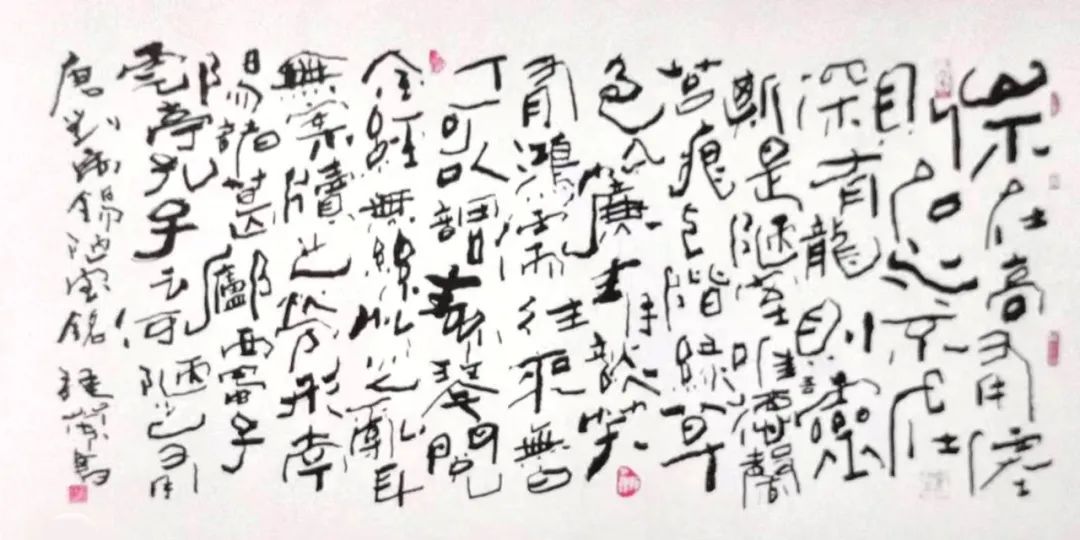 山不在高有僊
則名水不在
深有龍則靈
斯是陋室惟吾德馨
苔痕上階綠草
色入簾青談笑
有鴻儒往來無白
丁可以調素琴閱
金經無絲竹之亂耳
無案牘之勞形南
陽諸葛廬西蜀子
雲亭孔子云何陋之有
唐劉禹錫陋室銘